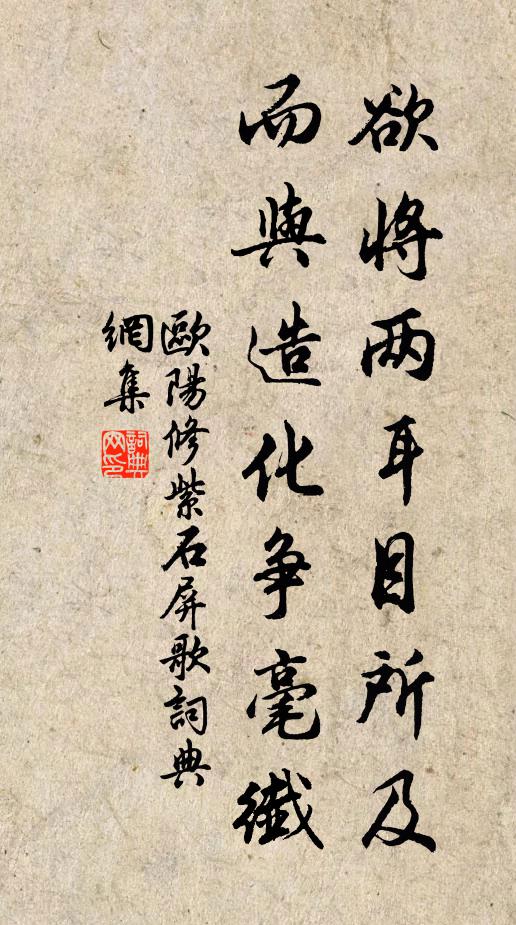 欲将两耳目所及
而與造化争毫纖
歐陽修紫石屏歌詞典
網集
詞典網印